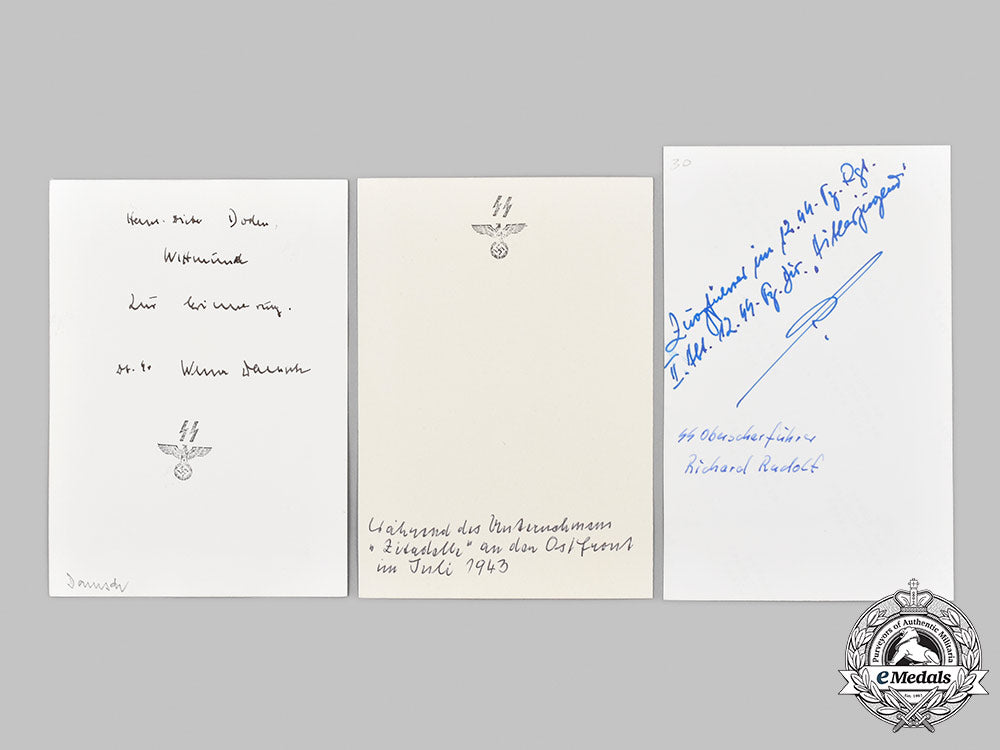 Herrn Dieter Doden,
Wittmund
zur Erinnerung.
Werner Damsch
Damsch
Während des Unternehmens
„Zitadelle“ an der Ostfront
im Juli 1943
30
Zugführer im 12. SS-Pz. Rgt.
II. Abt. 12. SS-Pz. Div. „Hitlerjugend“
SS Oberscharführer
Richard Rudolf
Purveyors of Authentic Militaria
eMedals